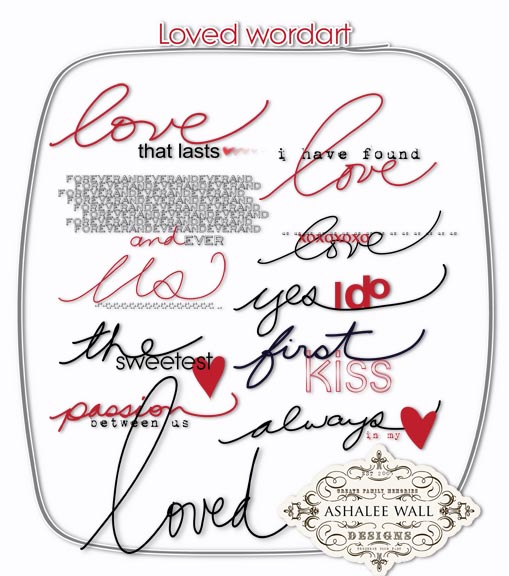 Loved wordart
love
that lasts
i have found
love
FOREVERANDEVERANDEVERAND
FOREVERANDEVERANDEVERAND
FOREVERANDEVERANDEVERAND
FOREVERANDEVERANDEVERAND
FOREVERANDEVERANDEVERAND
FOREVERANDEVERANDEVERAND
FOREVERANDEVERANDEVERAND
FOREVERANDEVERANDEVERAND
and EVER
love
xoxoxoxo
Us
yes I do
the
sweetest
first
kiss
passion
between us
always
in my
loved
CREATE FAMILY MEMORIES
ASHALEE WALL
DESIGNS